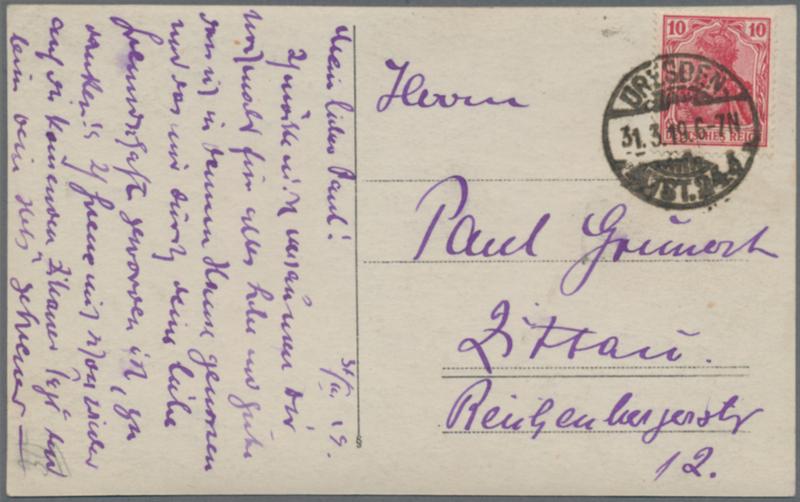 Mein lieber Paul!
31/III. 19.
möchte nicht versäumen Dir
nochmals für alles Liebe und Gute
das ich in Deinem Hause genossen
und das mir durch Deine liebe
Freundschaft geworden ist, zu
danken. freue mich schon wieder
auf die kommenden Zittauer Tage
10 10
DEUTSCHES REICH
DRESDEN
31.3.19.6-7N
ALTST.24
Herrn
Paul Grunert
Zittau.
Reichenbergerstr
12.